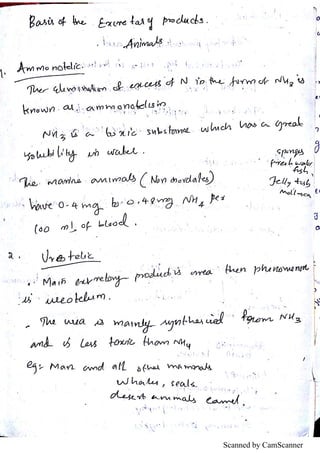 Basis of the Excretary products.
Animals
1. Ammonotelic:
The elimination of excess of N in the form of NH3 is
known as ammonotelism
NH3 is a toxic substance which has a great
solubility in water.
sponges
fresh water
fish,
Jelly fish
mollusca
The marine animals (Non chordates)
have 0.4 mg to 0.48 mg NH4 per
100 ml of blood.
2. Ureotelic
Main excretory product is urea then phenomenon
is ureotelism.
- The urea is mainly synthesized from NH3
and is less toxic than NH4
eg: Man and all other mammals
Whales, seals
desert animals camel.
Scanned by CamScanner